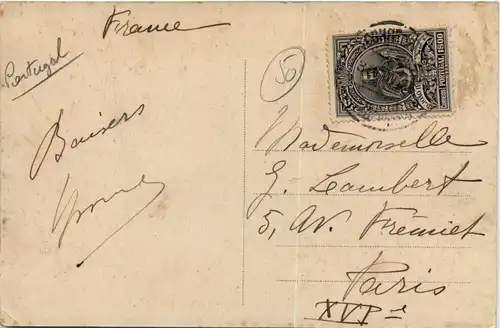 France
Portugal
50
Baisers
Yvonne
PORTUGAL 1$00
Mademoiselle
G. Lambert
5, Av. Frémiet
Paris
XVIe